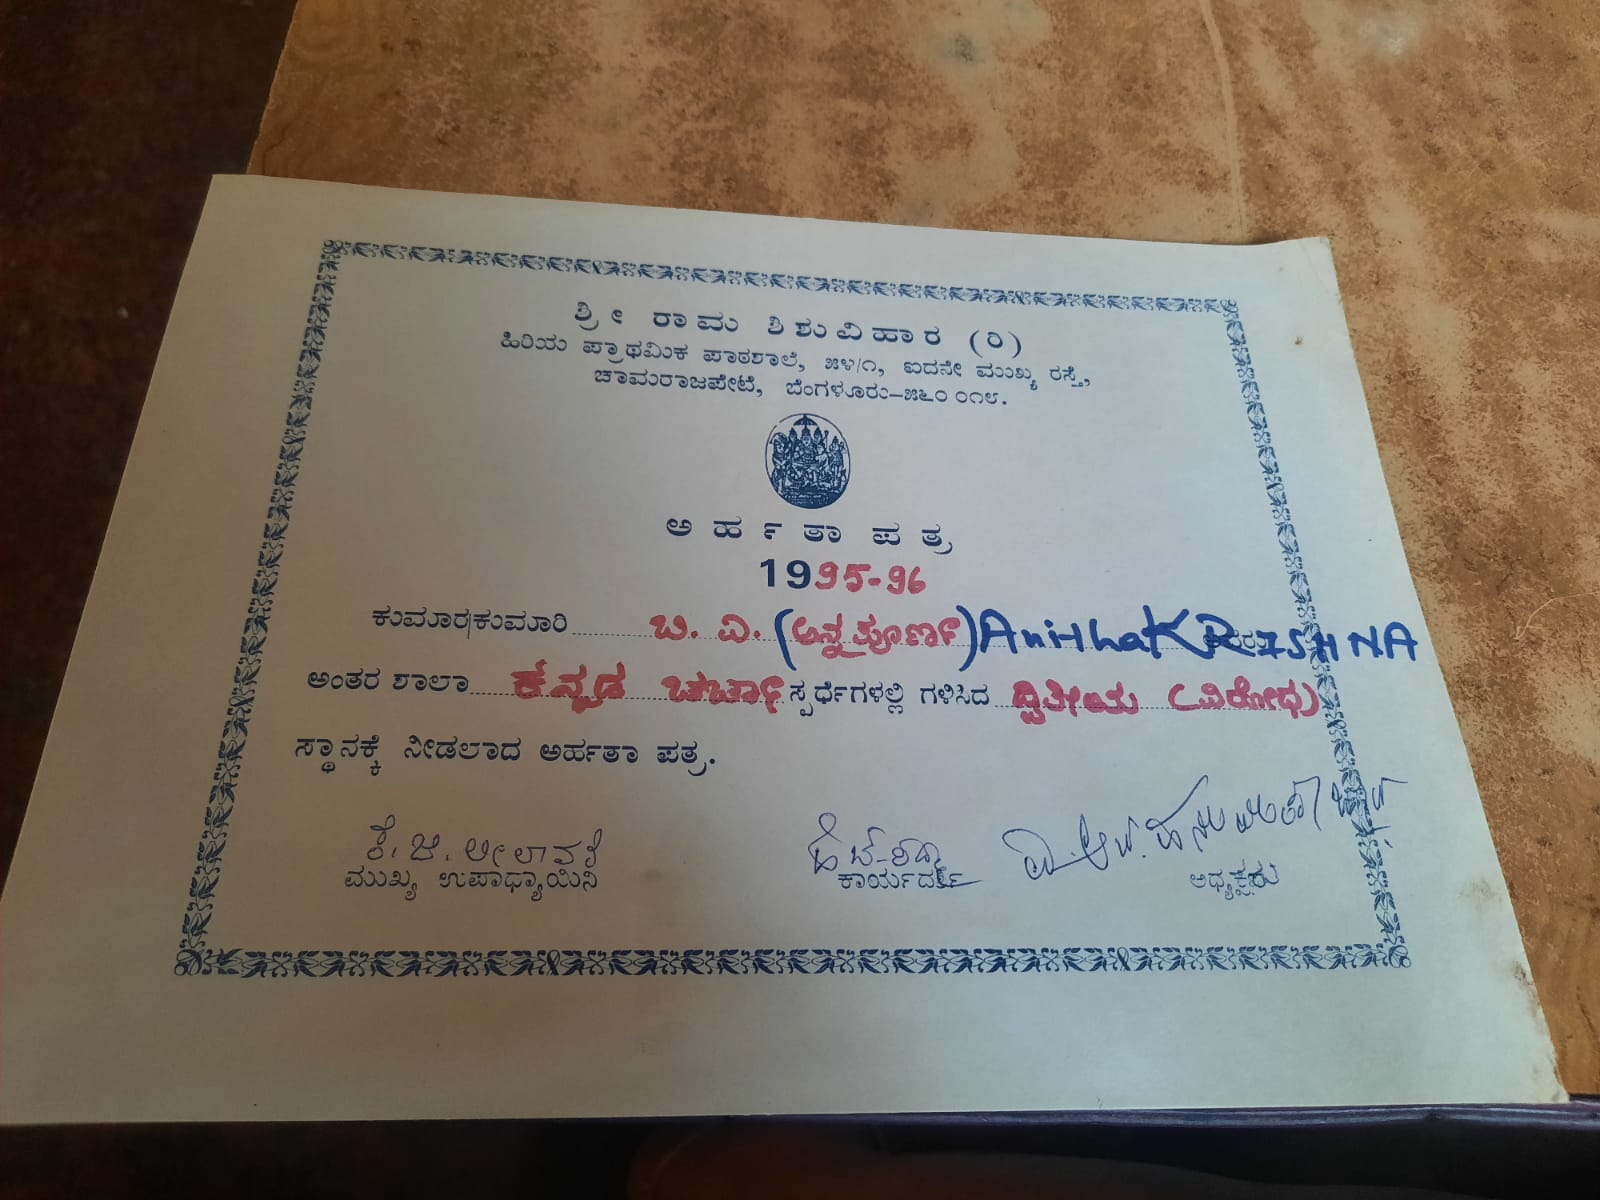 ಶ್ರೀ ರಾಮ ಶಿಶುವಿಹಾರ (ರಿ)
ಹಿರಿಯ ಪ್ರಾಥಮಿಕ ಪಾಠಶಾಲೆ, ೫೪/೧, ಐದನೇ ಮುಖ್ಯ ರಸ್ತೆ,
ಚಾಮರಾಜಪೇಟೆ, ಬೆಂಗಳೂರು–೫೬೦ ೦೧೮.
ಅರ್ಹತಾ ಪತ್ರ
1995-96
ಕುಮಾರ/ಕುಮಾರಿ ಬ. ವಿ. (ಅನ್ನಪೂರ್ಣ) AnithaKRISHNA
ಅಂತರ ಶಾಲಾ ಕನ್ನಡ ಚರ್ಚಾ ಸ್ಪರ್ಧೆಗಳಲ್ಲಿ ಗಳಿಸಿದ ದ್ವಿತೀಯ (ವಿರೋಧ)
ಸ್ಥಾನಕ್ಕೆ ನೀಡಲಾದ ಅರ್ಹತಾ ಪತ್ರ.
ಕೆ. ಜಿ. ಲೀಲಾವತಿ
ಮುಖ್ಯ ಉಪಾಧ್ಯಾಯಿನಿ ಕಾರ್ಯದರ್ಶಿ ಅಧ್ಯಕ್ಷರು